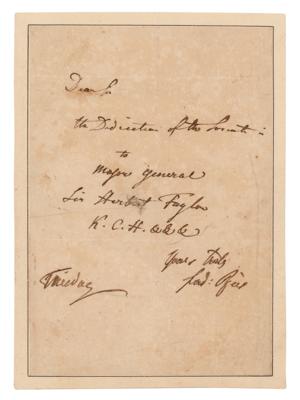 Dear Sir
the Dedication of the Sonata is
to
Major General
Sir Herbert Taylor
K. C. H. &c &c &c
Yours truly
Tuesday
Ferd: Ries